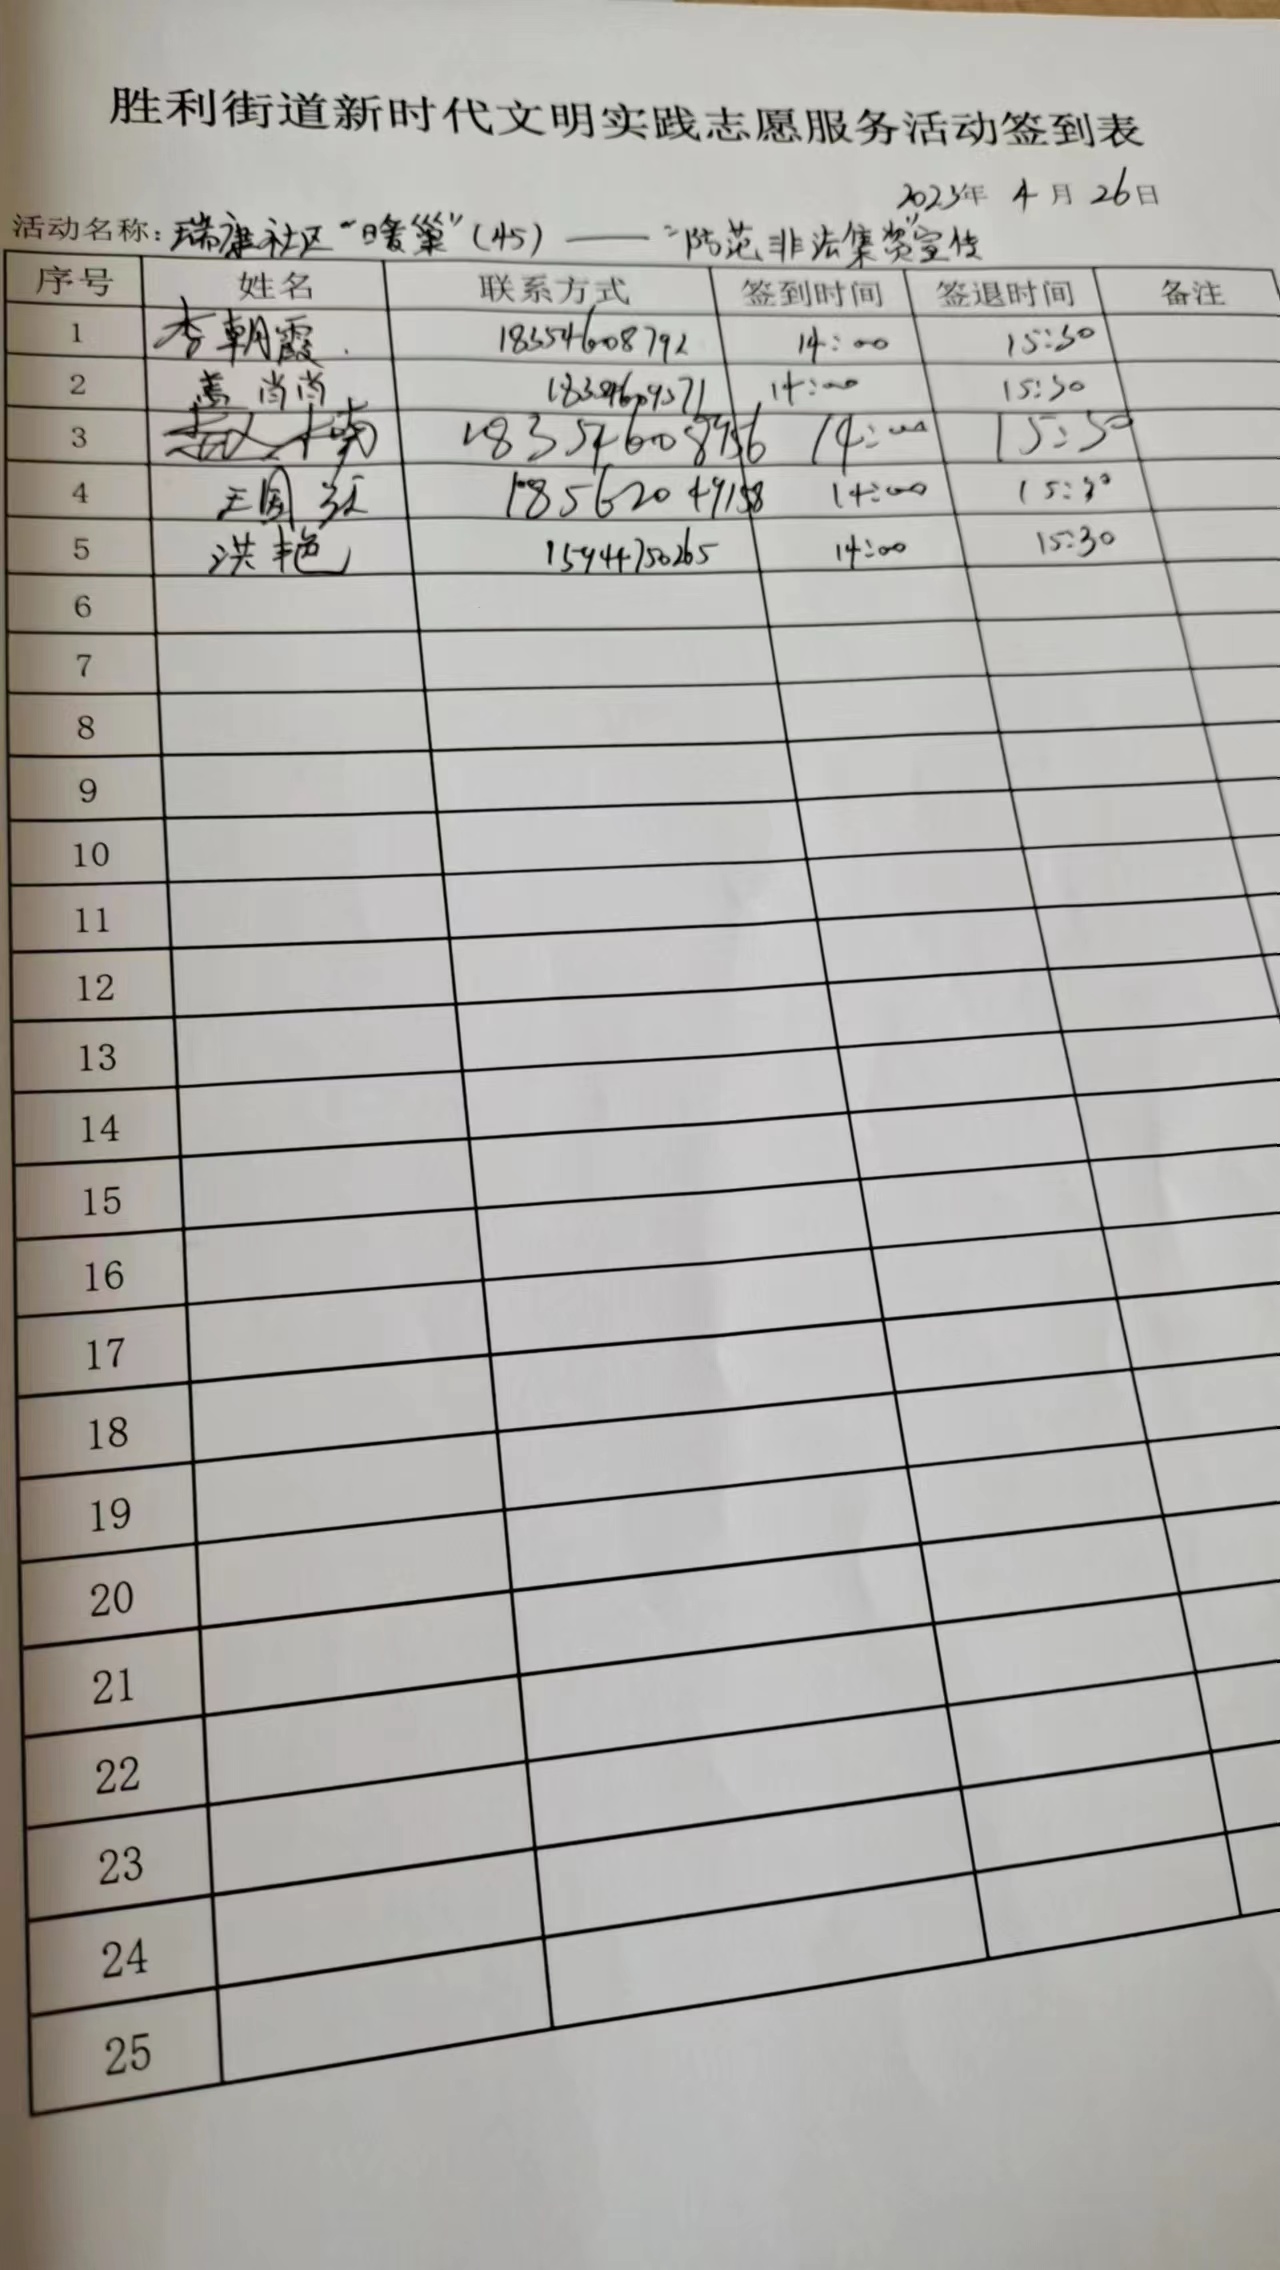 胜利街道新时代文明实践志愿服务活动签到表
2023年 4月 26日
活动名称：瑞康社区“暖巢”(45)——“防范非法集资”宣传
序号 姓名 联系方式 签到时间 签退时间 备注
1 李朝霞 18354608792 14:00 15:30
2 盖肖肖 14:00 15:30
3 楠 18354608956 14:00 15:30
4 王国 18562049158 14:00 15:30
5 洪艳 15944750265 14:00 15:30
6
7
8
9
10
11
12
13
14
15
16
17
18
19
20
21
22
23
24
25